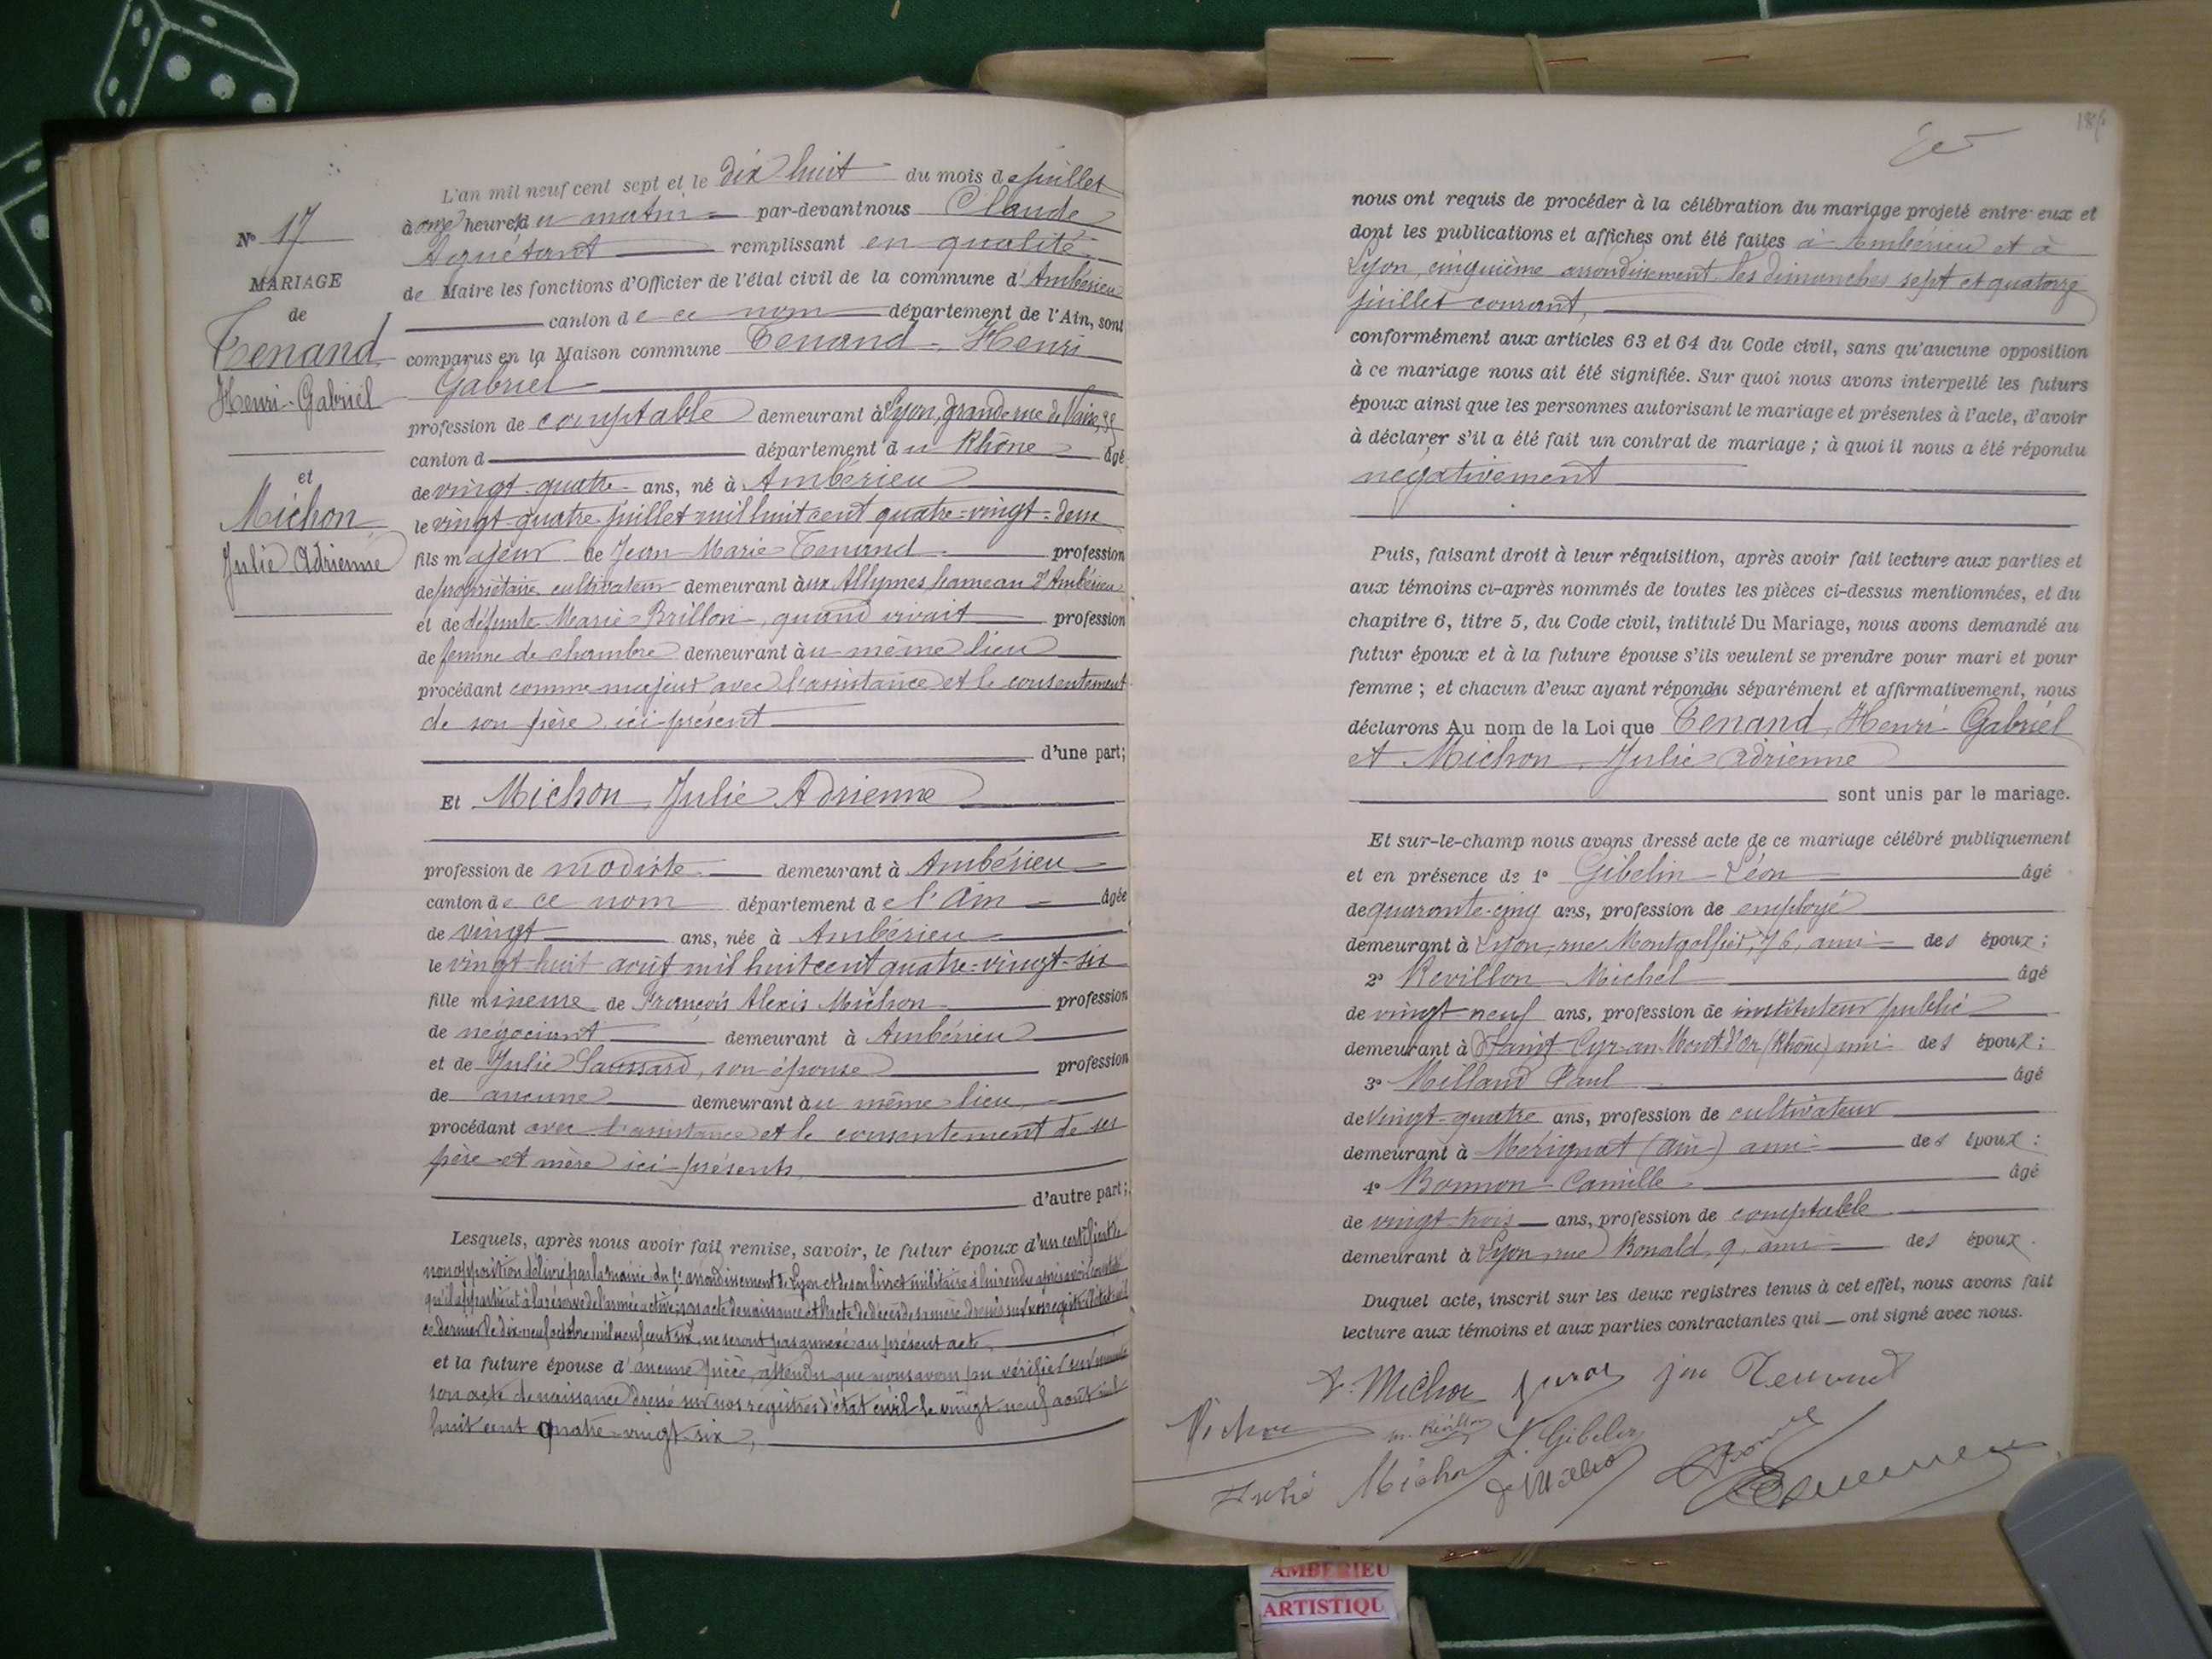 L'an mil neuf cent sept et le dix huit du mois de juillet
à onze heures du matin par-devant nous Claude
Aguétant remplissant en qualité
de Maire les fonctions d'Officier de l'état civil de la commune d'Ambérieu
canton de ce nom département de l'Ain, sont
comparus en la Maison commune Tenand Henri
Gabriel
profession de comptable demeurant à Lyon, grande rue de Vaise,
canton d département du Rhône âgé
de vingt-quatre ans, né à Ambérieu
le vingt-quatre juillet mil huit cent quatre-vingt-deux
fils majeur de Jean Marie Tenand profession
de propriétaire cultivateur demeurant aux Allymes, hameau d'Ambérieu
et de défunte Marie Brillon, quand vivait profession
de femme de chambre demeurant au même lieu
procédant comme majeur avec l'assistance et le consentement
de son père ici présent
d'une part;
Et Michon, Julie Adrienne
profession de modiste demeurant à Ambérieu
canton de ce nom département de l'Ain âgée
de vingt ans, née à Ambérieu
le vingt-huit août mil huit cent quatre-vingt-six
fille mineure de François Alexis Michon profession
de négociant demeurant à Ambérieu
et de Julie Saussard, son épouse profession
de aucune demeurant au même lieu,
procédant avec l'assistance et le consentement de ses
père et mère ici présents,
d'autre part;
Lesquels, après nous avoir fait remise, savoir, le futur époux d'un certificat de
non opposition délivré par la mairie du 5e arrondissement de Lyon et de son livret militaire à lui rendu après avoir constaté
qu'il appartient à la réserve de l'armée active; son acte de naissance et l'acte de décès de sa mère dressés sur nos registres d'état civil
ce dernier le dix-neuf octobre mil neuf cent six, ne seront pas annexés au présent acte.
et la future épouse d'aucune pièce, attendu que nous avons pu vérifier sur
son acte de naissance dressé sur nos registres d'état civil le vingt neuf août mil
huit cent quatre-vingt-six,
N° 17
MARIAGE
de
Tenand
Henri-Gabriel
et
Michon
Julie Adrienne
nous ont requis de procéder à la célébration du mariage projeté entre eux et
dont les publications et affiches ont été faites à Ambérieu et à
Lyon, cinquième arrondissement les dimanches sept et quatorze
juillet courant,
conformément aux articles 63 et 64 du Code civil, sans qu'aucune opposition
à ce mariage nous ait été signifiée. Sur quoi nous avons interpellé les futurs
époux ainsi que les personnes autorisant le mariage et présentes à l'acte, d'avoir
à déclarer s'il a été fait un contrat de mariage; à quoi il nous a été répondu
négativement
Puis, faisant droit à leur réquisition, après avoir fait lecture aux parties et
aux témoins ci-après nommés de toutes les pièces ci-dessus mentionnées, et du
chapitre 6, titre 5, du Code civil, intitulé Du Mariage, nous avons demandé au
futur époux et à la future épouse s'ils veulent se prendre pour mari et pour
femme; et chacun d'eux ayant répondu séparément et affirmativement, nous
déclarons Au nom de la Loi que Tenand, Henri-Gabriel
et Michon, Julie Adrienne
sont unis par le mariage.
Et sur-le-champ nous avons dressé acte de ce mariage célébré publiquement
et en présence de 1° Gibelin Léon âgé
de quarante-cinq ans, profession de employé
demeurant à Lyon, rue Montgolfier, 76, ami des époux;
2° Revillon Michel âgé
de vingt-neuf ans, profession de instituteur public
demeurant à Saint-Cyr-au-Mont-d'Or (Rhône) ami des époux;
3° Milland Paul âgé
de vingt-quatre ans, profession de cultivateur
demeurant à Mérignat (Ain) ami des époux;
4° Bonnon Camille âgé
de vingt-trois ans, profession de comptable
demeurant à Lyon, rue Bonald, 9, ami des époux.
Duquel acte, inscrit sur les deux registres tenus à cet effet, nous avons fait
lecture aux témoins et aux parties contractantes qui ont signé avec nous.
Michon
Tenand
Michon
m. Révillon
L. Gibelin
Julie Michon
AMBERIEU
ARTISTIQU